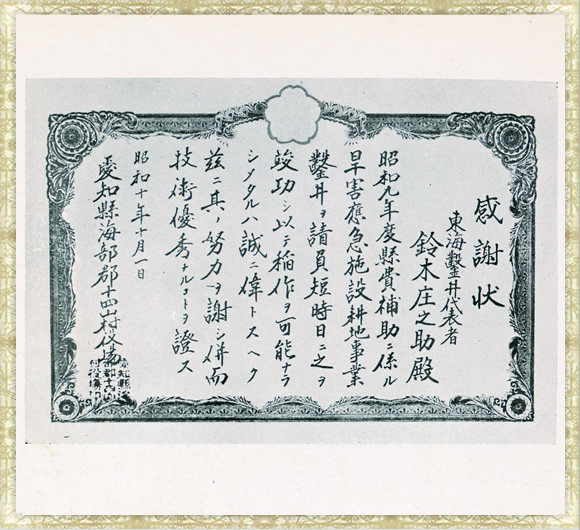 感謝状
東海鑿井代表者
鈴木庄之助殿
昭和九年度縣費補助ニ係ル
旱害應急施設耕地事業
鑿井ヲ請負短時日ニ之ヲ
竣功シ以テ稲作ヲ可能ナラ
シメタルハ誠ニ偉トスヘク
玆ニ其ノ努力ヲ謝シ併而
技術優秀ナルコトヲ證ス
昭和十年十月一日
愛知縣海部郡十四山村役場